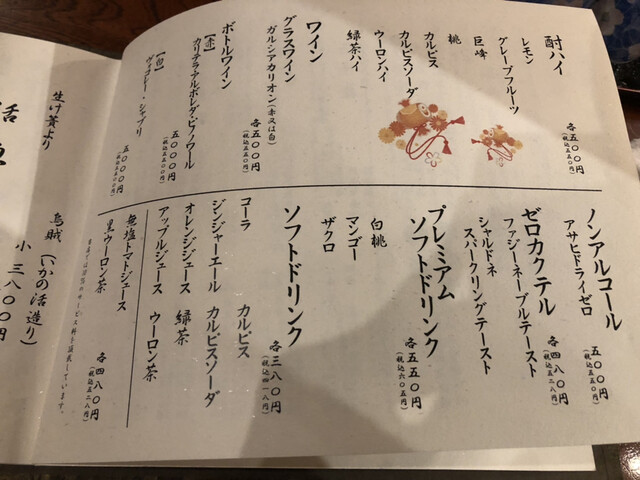 酎ハイ
レモン
グレープフルーツ
巨峰
桃
カルピス
カルピスソーダ
ウーロンハイ
緑茶ハイ
各五〇〇円
(税込五五〇円)
ワイン
グラスワイン
ガルシアカリオン(赤又は白)
各五〇〇円
(税込五五〇円)
ボトルワイン
【赤】
カリテラアルボレダ・ピノワール
五〇〇〇円
(税込五五〇〇円)
【白】
ヴィコレー・シャブリ
五〇〇〇円
(税込五五〇〇円)
ノンアルコール
アサヒドライゼロ
五〇〇円
(税込五五〇円)
ゼロカクテル
ファジーネーブルテースト
シャルドネ
スパークリングテースト
各四八〇円
(税込五二八円)
プレミアム
ソフトドリンク
白桃
マンゴー
ザクロ
各五五〇円
(税込六〇五円)
ソフトドリンク
コーラ
カルピス
ジンジャーエール
カルピスソーダ
オレンジジュース
緑茶
アップルジュース
ウーロン茶
各三八〇円
(税込四一八円)
無塩トマトジュース
黒ウーロン茶
各四八〇円
(税込五二八円)
生け簀より
烏賊(いかの活造り)
小 三八〇〇円
活